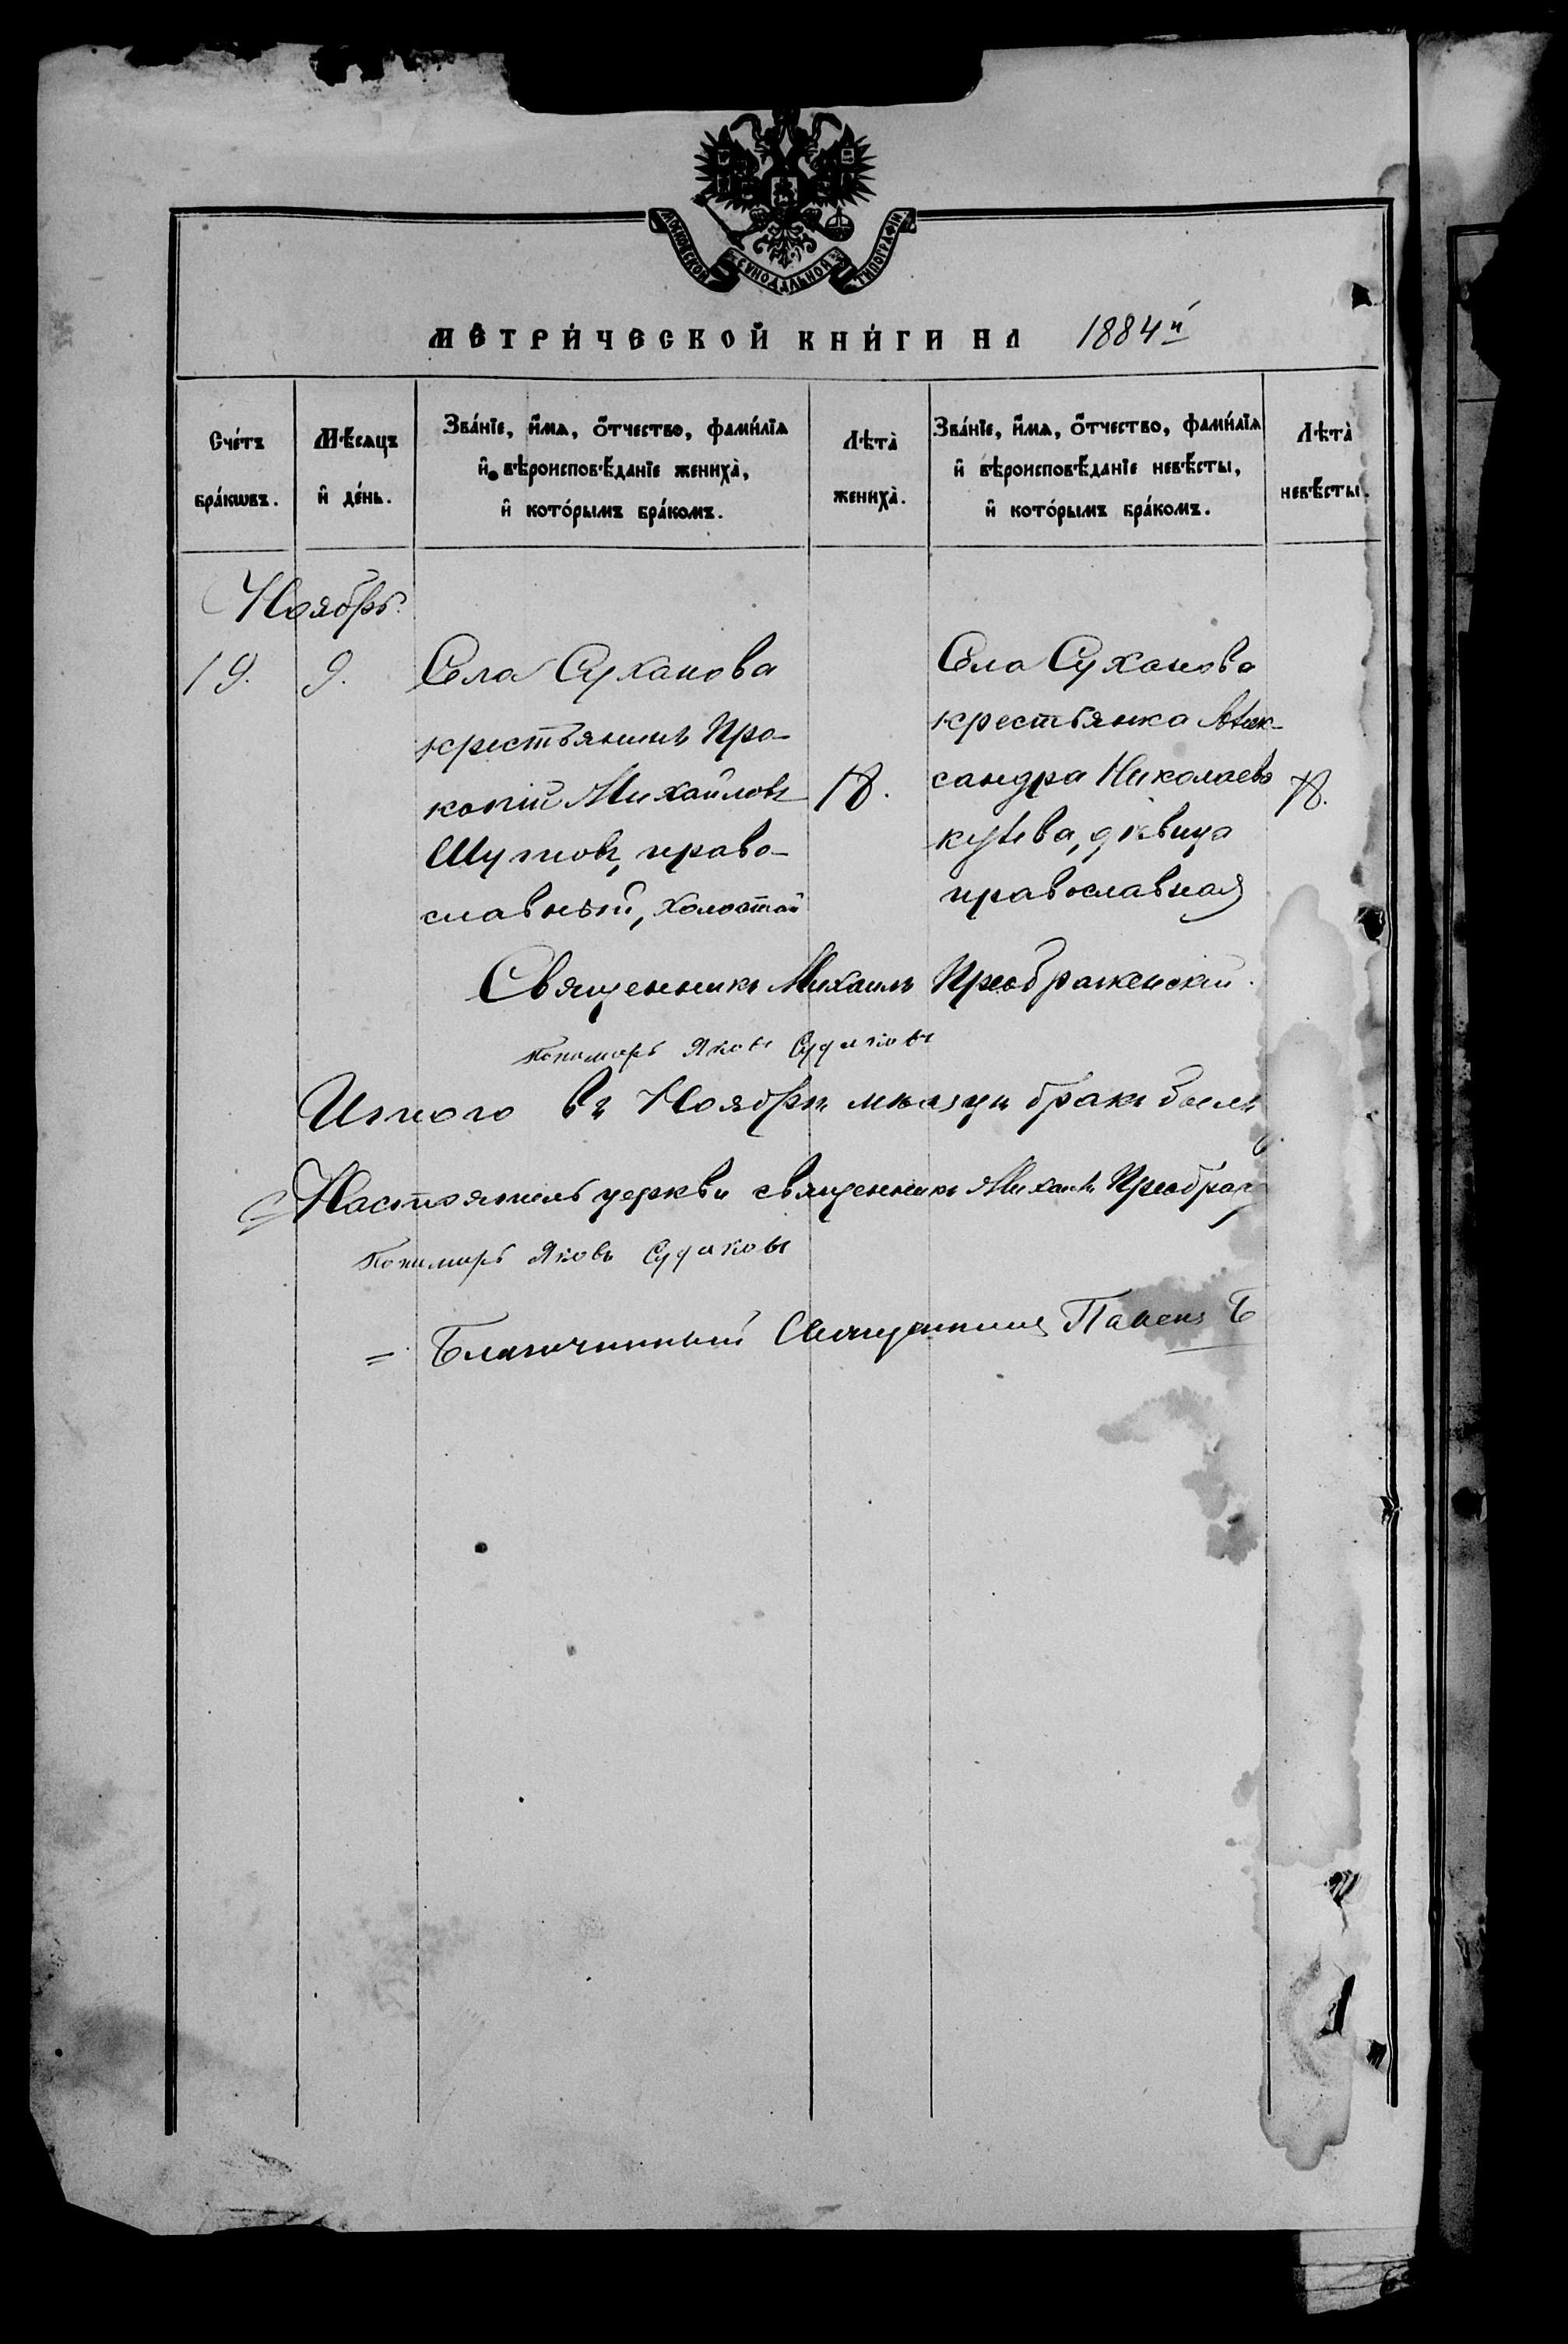 МОСКОВСКОЙ СѴНОДАЛЬНОЙ ТИПОГРАФІИ
МЕТРИ́ЧЕСКОЙ КНИ́ГИ НА 1884й
Сче́тъ бра́кѡвъ.
Мѣ́сѧцъ и҆ де́нь.
Зва́нїе, и҆́мѧ, ѻ҆́тчество, фами́лїѧ
и҆ вѣроисповѣ́данїе жениха̀,
и҆ кото́рымъ бра́комъ.
Лѣта̀ жениха̀.
Зва́нїе, и҆́мѧ, ѻ҆́тчество, фами́лїѧ
и҆ вѣроисповѣ́данїе невѣ́сты,
и҆ кото́рымъ бра́комъ.
Лѣта̀ невѣ́сты.
Ноябрь.
19. 9.
Села Суханова
крестьянинъ Про-
копій Михайловъ
Шутовъ, право-
славный, холостой
18.
Села Суханова
крестьянка Алек-
сандра Николаева
девица
православная
18.
Священникъ Михаилъ Преображенскій.
Пономарь Яковъ Судаковъ
Итого въ Ноябрѣ мѣсяцѣ бракъ
Настоятель церкви священникъ Михаилъ Преображ
Пономарь Яковъ Судаковъ
= Благочинный Священникъ Павелъ Б